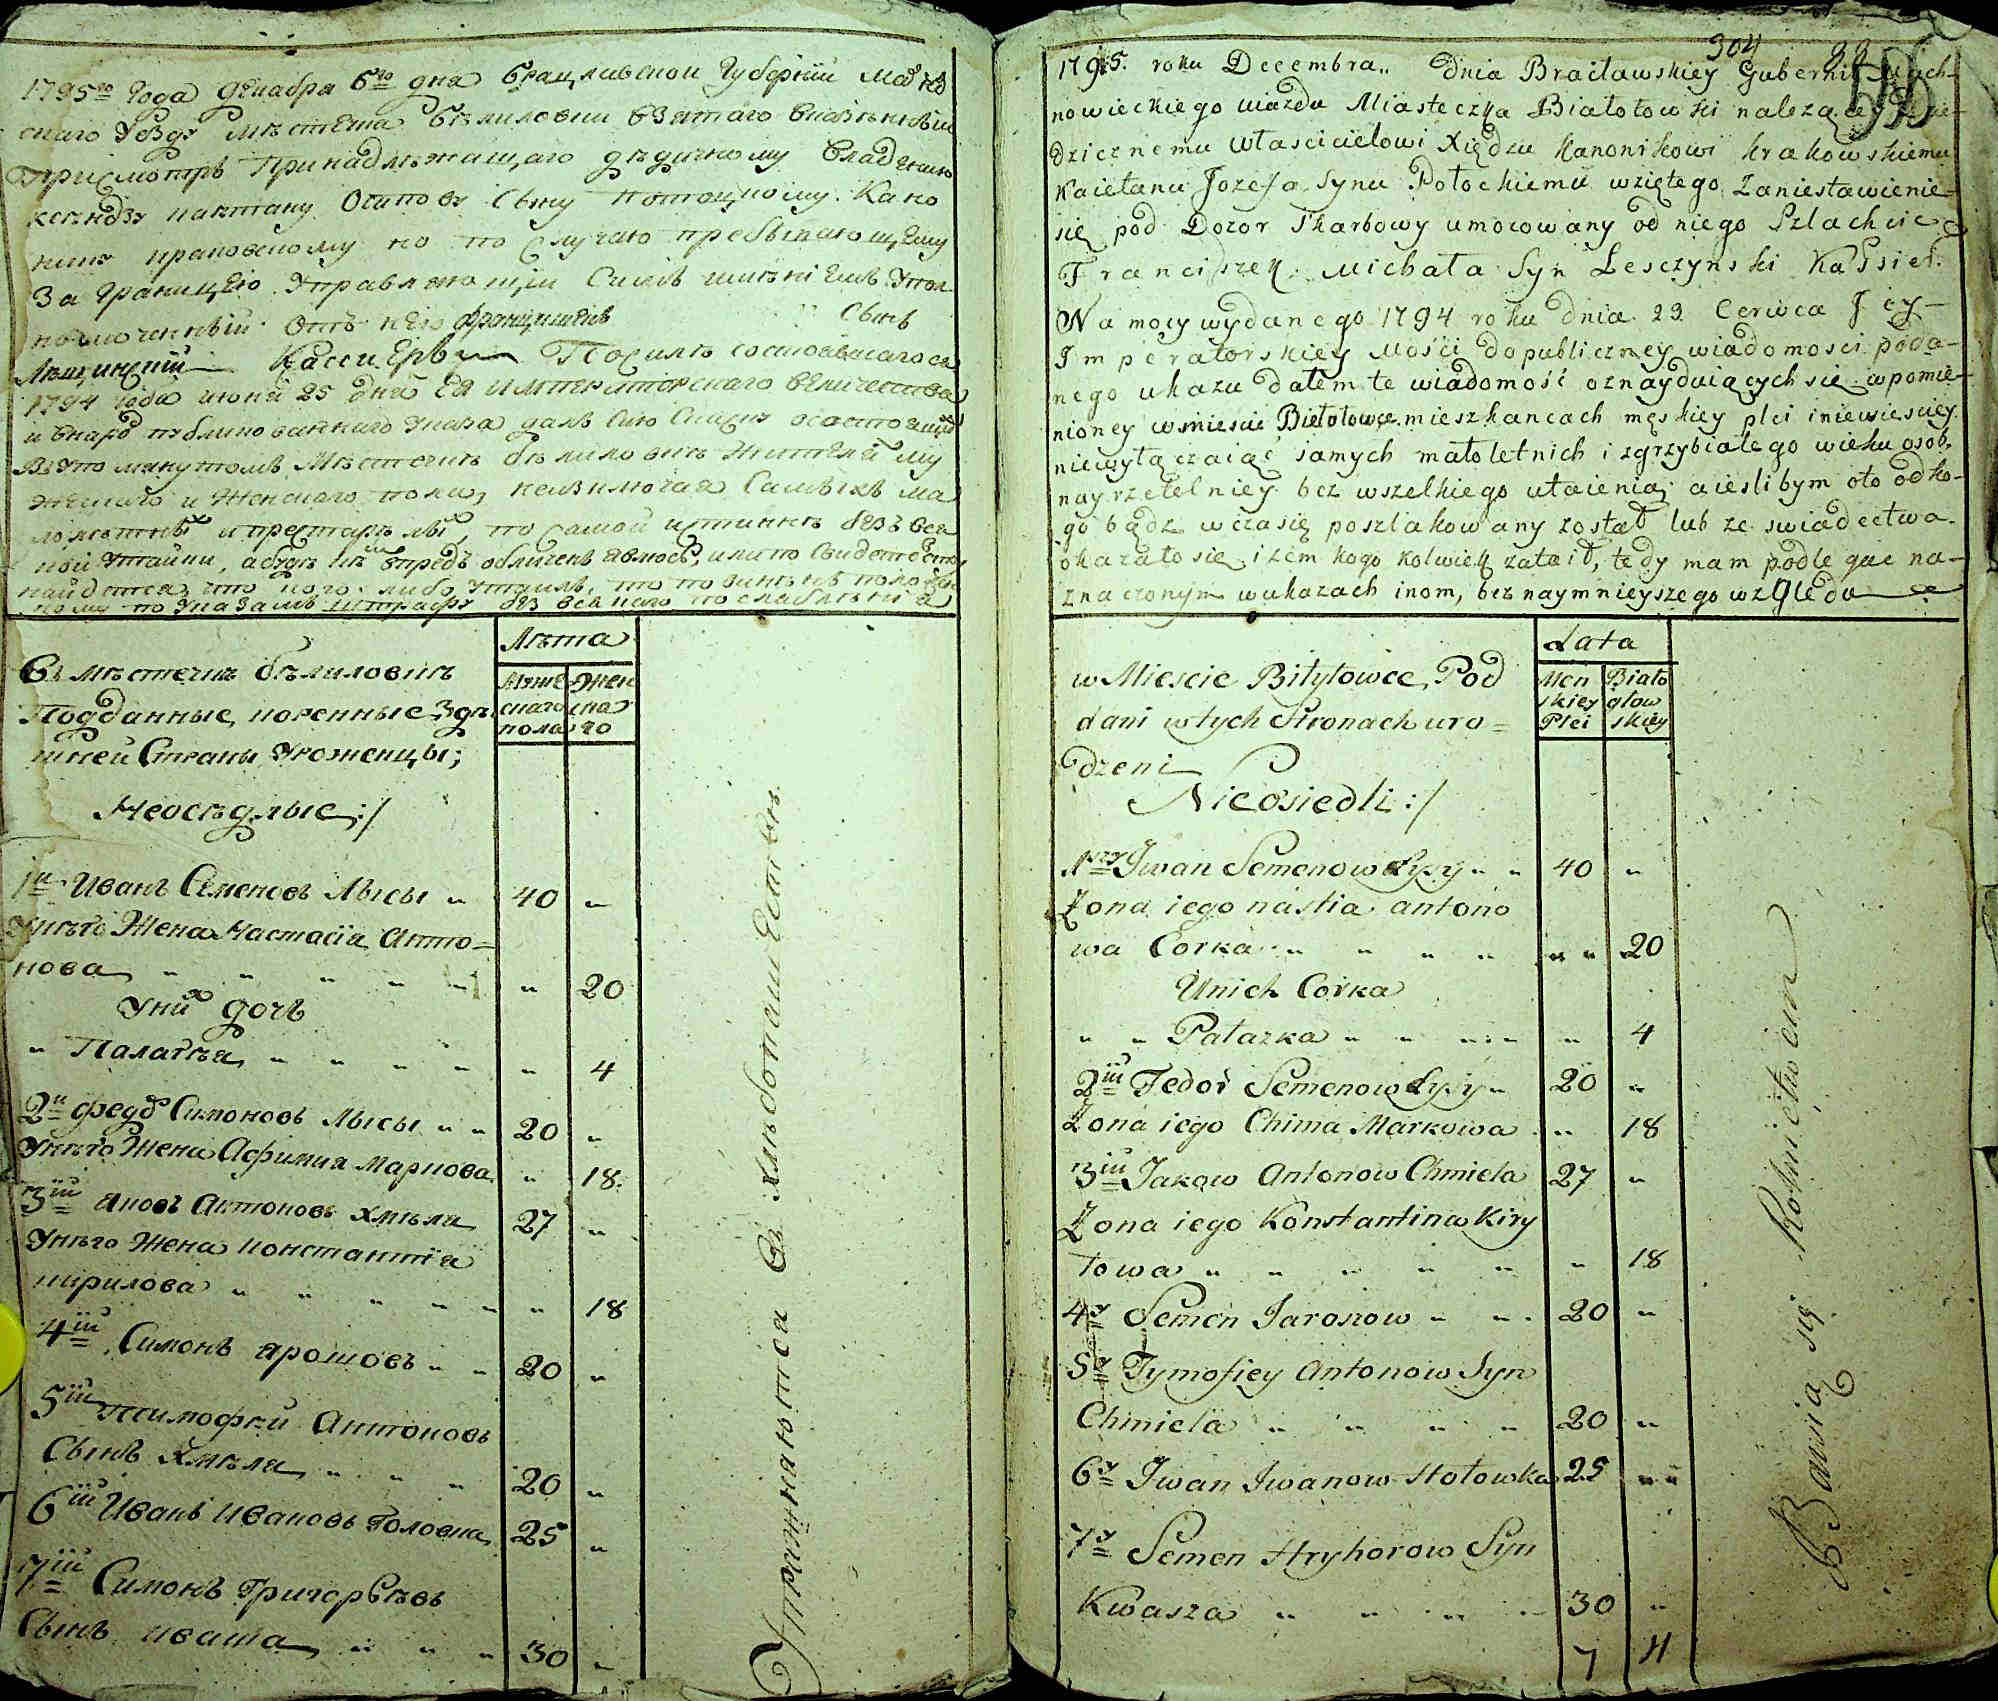 1795го Года Декабря 6го дня Брацлавской Губернiи Махно
скаго Уезду Местечка Белиловки взятаго
Присмотръ Принадлежащаго дедичному Владелцу
ксендзу каетану Осипову Сыну потоцкому Кано
нику краковскому но по Случаю пребывающему
За Границею Управляющiй Симъ имениемъ Упол
номоченный Отъ него францишекъ Сынъ
Лещинскiй Кассиеръ По силе состоявшагося
1794 года июня 25 дня Ея Императорскаго величества
и публикованнаго Указа далъ Сию Сказку о состоящихъ
въ упомянутомъ Местечке белиловке Жителей му
жескаго и Женскаго пола, неизключая Самыхъ ма
лолетныхъ и престарелыхъ, по самой истинне безъ вся
кой Утайки, а буде впредь обличенъ явлюсь, или по Свидетелству
найдется что кого либо Утаилъ, то повиненъ положен
ному по Указамъ штрафу без всякаго послабления
Въ местечке белиловке
Подданные, коренные Зде
шней Страны Уроженцы;
Неоседлые :/
Лета
Муже
скаго
пола
Жен
ска
го
1й Иванъ Семеновъ Лысы „ 40 „
Унего Жена Настасiя Анто=
нова „ „ „ „ „ „ 20
Унихъ дочь
„ Палажка „ „ „ „ „ 4
2й федоръ Симоновъ Лысы „ „ 20 „
Унего Жена Афимия Маркова „ 18
3iй яковъ Антоновъ хмеля 27 „
Унего Жена константiя
кирилова „ „ „ „ „ „ 18
4iй Симонъ ярошовъ „ „ 20 „
5iй Тимофей Антоновъ
Сынъ Хмеля „ „ „ 20 „
6iй Иванъ Ивановъ Головка 25 „
7iй Симонъ Григорьевъ
Сынъ кваша „ „ „ 30 „
Упражняются Въ хлебопашестве
304
1795. roku Decembra „ dnia Bracławskiey Gubernii Mach-
nowieckiego uiazdu Miasteczka Białołowki należącey
dzicznemu własćicielowi Xiędzu Kanonikowi krakowskiemu
Kaietanu Jozefa Synu Potockiemu wziętego Zaniestawienie
się pod Dozor Skarbowy umocowany od niego Szlachcic
Franciszek Michała Syn Lesczynski Kassier.
Na mocy wydanego 1794 roku dnia 23 Cerwca Jey-
Imperatorskiey Mości do publiczney wiadomosci poda-
nego ukazu dałem te wiadomość oznayduiących się wpomie-
nioney wmiescie Biełołowce mieszkancach męskiey płci iniewiesciey
niewyłączaiąć samych małoletnich i zgrzybiałego wieku osob,
nayrzetelniey bez wszelkiego utaienia, aieslibym oto odko-
go bądz wczasię poszlakowany został lub ze swiadectwa
okazało się iżem kogo kolwiek zataił, tedy mam podlegac na-
znaczonym wukazach inom, bez naymnieyszego względu
w Miescie Biłyłowce, Pod
dani wtych Stronach uro=
dzeni
Nieosiedli :/
Lata
Men
skiey
Płci
Biało
głow
skiey
1szy Jwan Semenow Łysy „ „ 40 „
Żona iego nastia antono
wa Corka „ „ „ „ „ „ 20
Unich Corka
„ „ Pałazka „ „ „ „ „ 4
2iii Fedor Semenow Łysy „ 20 „
Żona iego Chima Markowa „ 18
3iii Jakow Antonow Chmiela 27 „
Żona iego Konstantina Kiry
łowa „ „ „ „ „ „ 18
4y Semen Jaroszow „ „ 20 „
5y Tymofiey Antonow Syn
Chmiela „ „ „ „ 20 „
6y Jwan Jwanow Hołowka 25 „ „
7y Semen Hryhorow Syn
Kwasza „ „ „ „ 30 „
7 4
Bawią się Rolnictwem